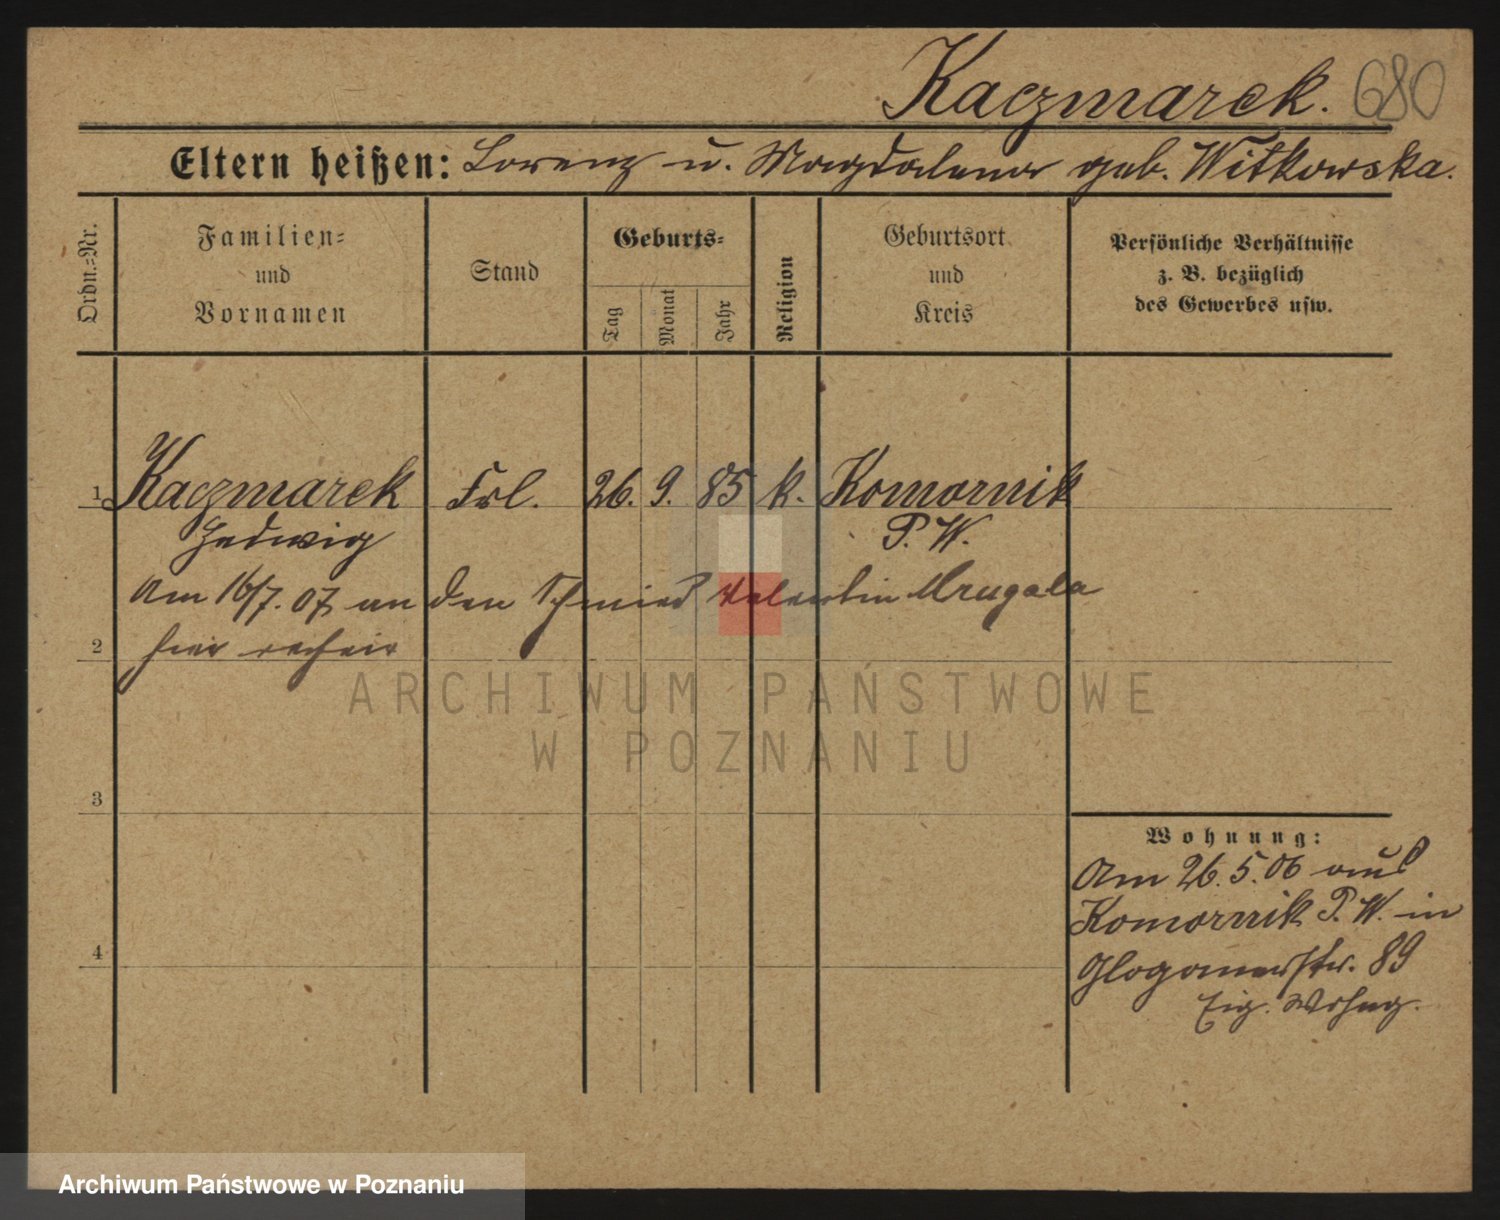 Kaczmarek. 680
Eltern heißen: Lorenz u. Magdalena geb. Witkowska.
Ordn.-Nr.
Familien-
und
Vornamen
Stand
Geburts-
Tag
Monat
Jahr
Religion
Geburtsort
und
Kreis
Persönliche Verhältnisse
z. B. bezüglich
des Gewerbes usw.
1 Kaczmarek Frl. 26. 9. 85 k. Komornik
Hedwig P. W.
Am 16/7. 07 an den Schmied Valentin Mrugala
2 hier verheir
ARCHIWUM PAŃSTWOWE
W POZNANIU
3
Wohnung:
Am 26. 5. 06 aus
Komornik P. W. in
4 Glogauerstr. 89
Eig. Wohng.
Archiwum Państwowe w Poznaniu